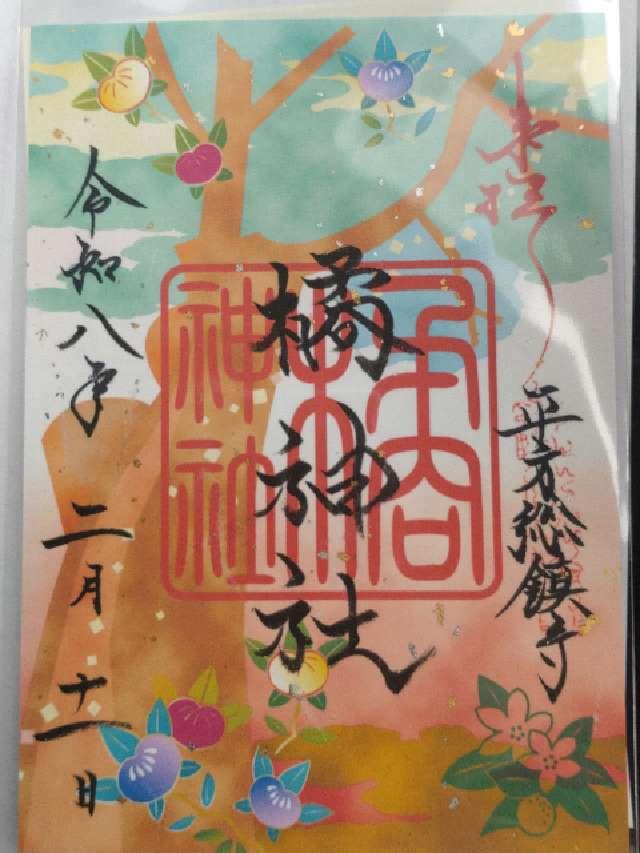 奉拝
平方総鎮守
橘神社
神社
令和八年二月十一日